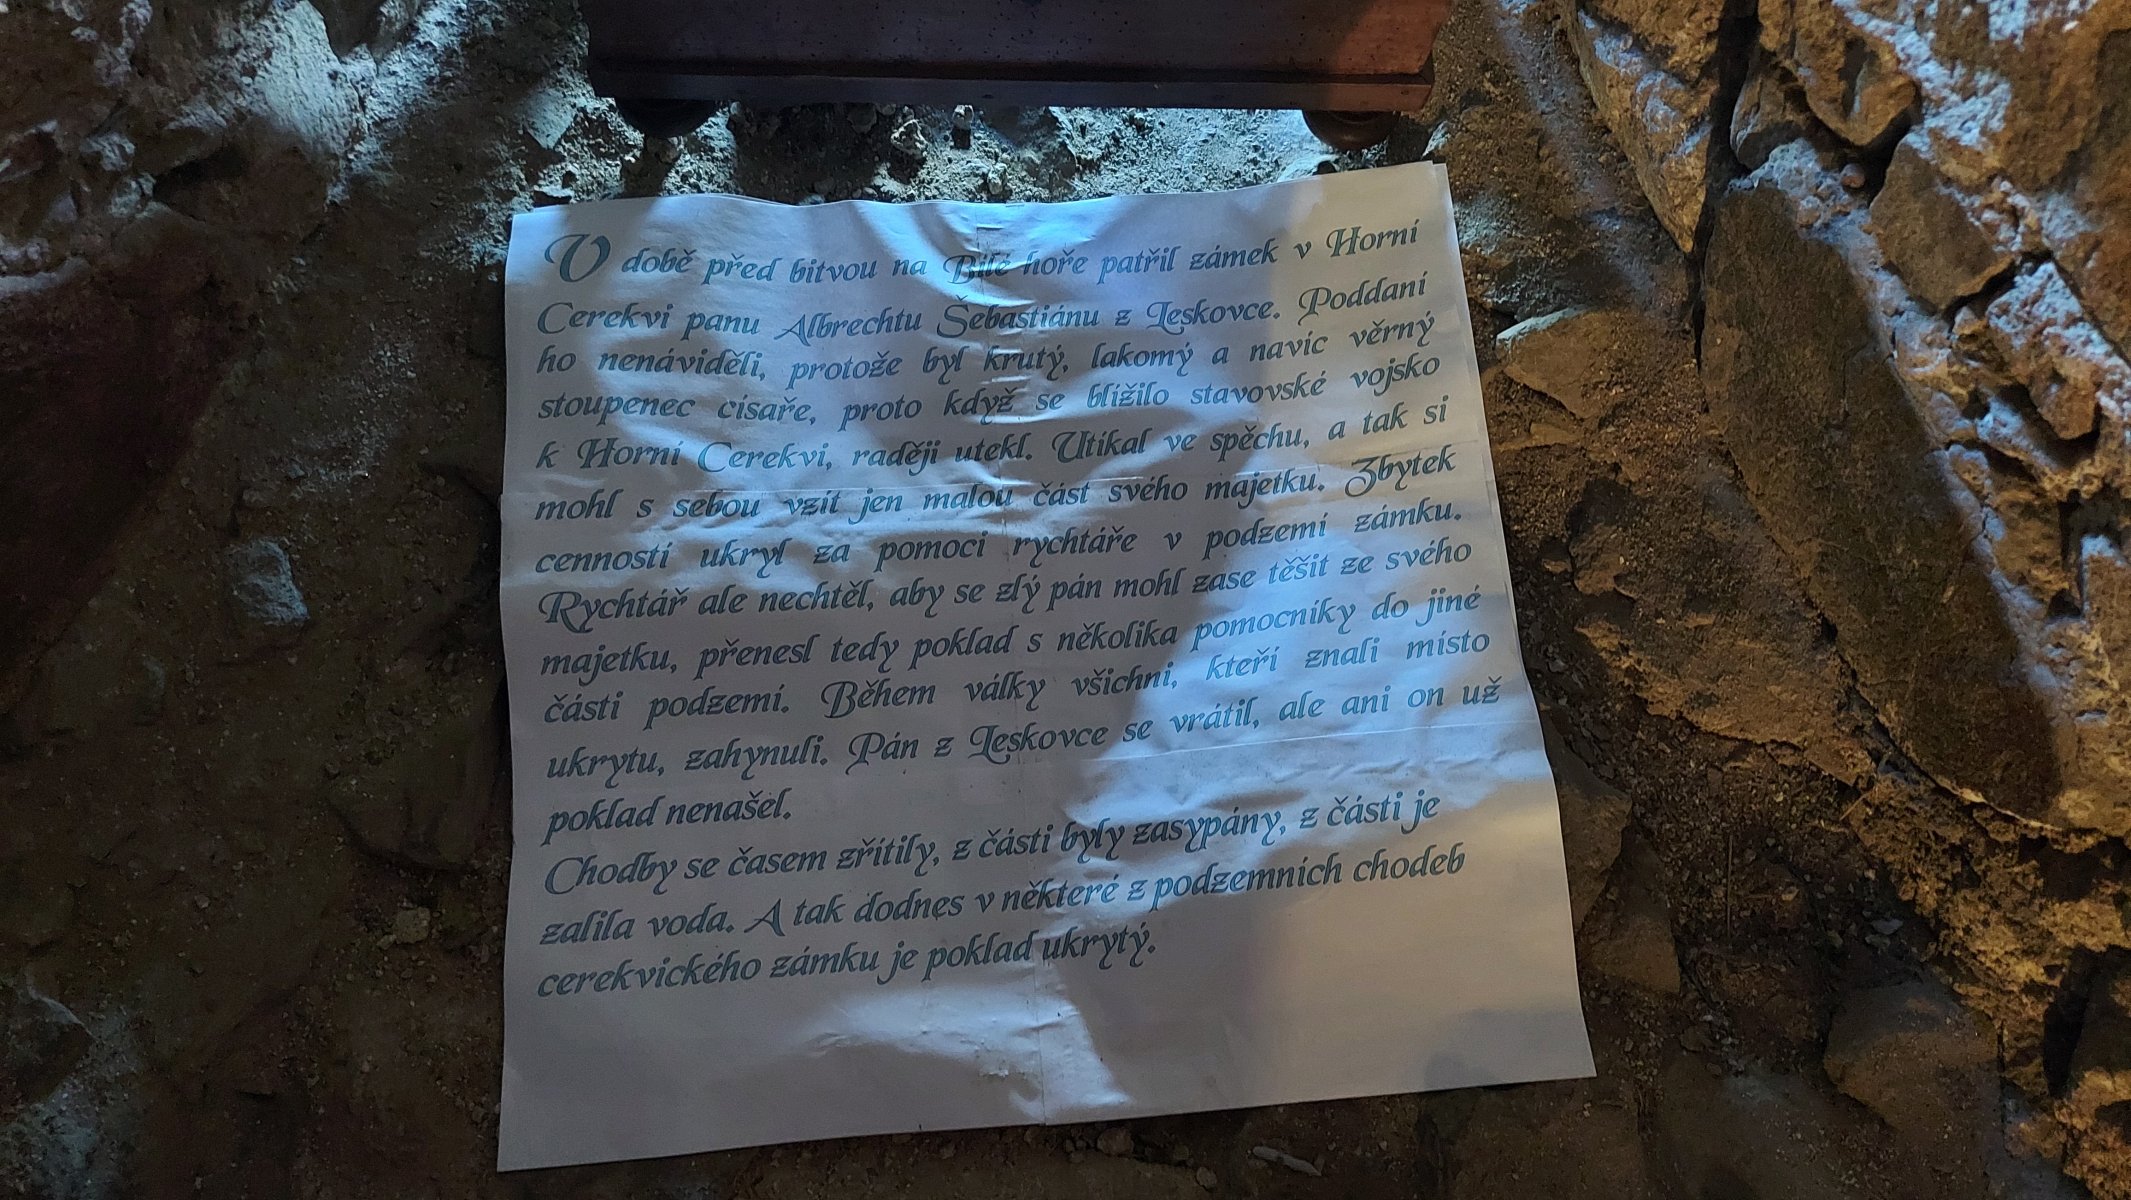 V době před bitvou na Bílé hoře patřil zámek v Horní
Cerekvi panu Albrechtu Šebastiánu z Leskovce. Poddaní
ho nenáviděli, protože byl krutý, lakomý a navíc věrný
stoupenec císaře, proto když se blížilo stavovské vojsko
k Horní Cerekvi, raději utekl. Utíkal ve spěchu, a tak si
mohl s sebou vzít jen malou část svého majetku. Zbytek
cenností ukryl za pomoci rychtáře v podzemí zámku.
Rychtář ale nechtěl, aby se zlý pán mohl zase těšit ze svého
majetku, přenesl tedy poklad s několika pomocníky do jiné
části podzemí. Během války všichni, kteří znali místo
ukrytu, zahynuli. Pán z Leskovce se vrátil, ale ani on už
poklad nenašel.
Chodby se časem zřítily, z části byly zasypány, z části je
zalila voda. A tak dodnes v některé z podzemních chodeb
cerekvického zámku je poklad ukrytý.